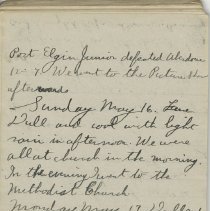 Port Elgin Junior defeated Aberdeen
12-7 We went to the Picture Show
afterwards
Sunday May 16. Fine
Dull and cool with light
rain in afternoon. We were
all at church in the morning.
In the evening I went to the
Methodist Church.
Monday May 17.